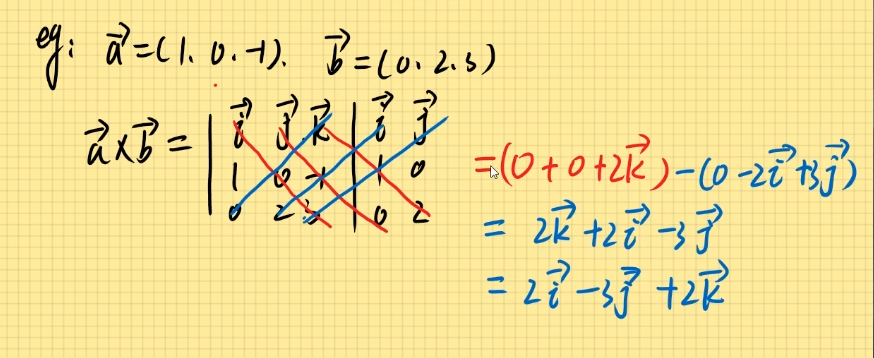 eg: a⃗=(1、0、-1)、 b⃗=(0、2、3)
a⃗×b⃗ = | i⃗ j⃗ k⃗ | i⃗ j⃗
1 0 -1 | 1 0
0 2 3 | 0 2
=(0+0+2k⃗)-(0-2i⃗+3j⃗)
= 2k⃗+2i⃗-3j⃗
= 2i⃗-3j⃗+2k⃗